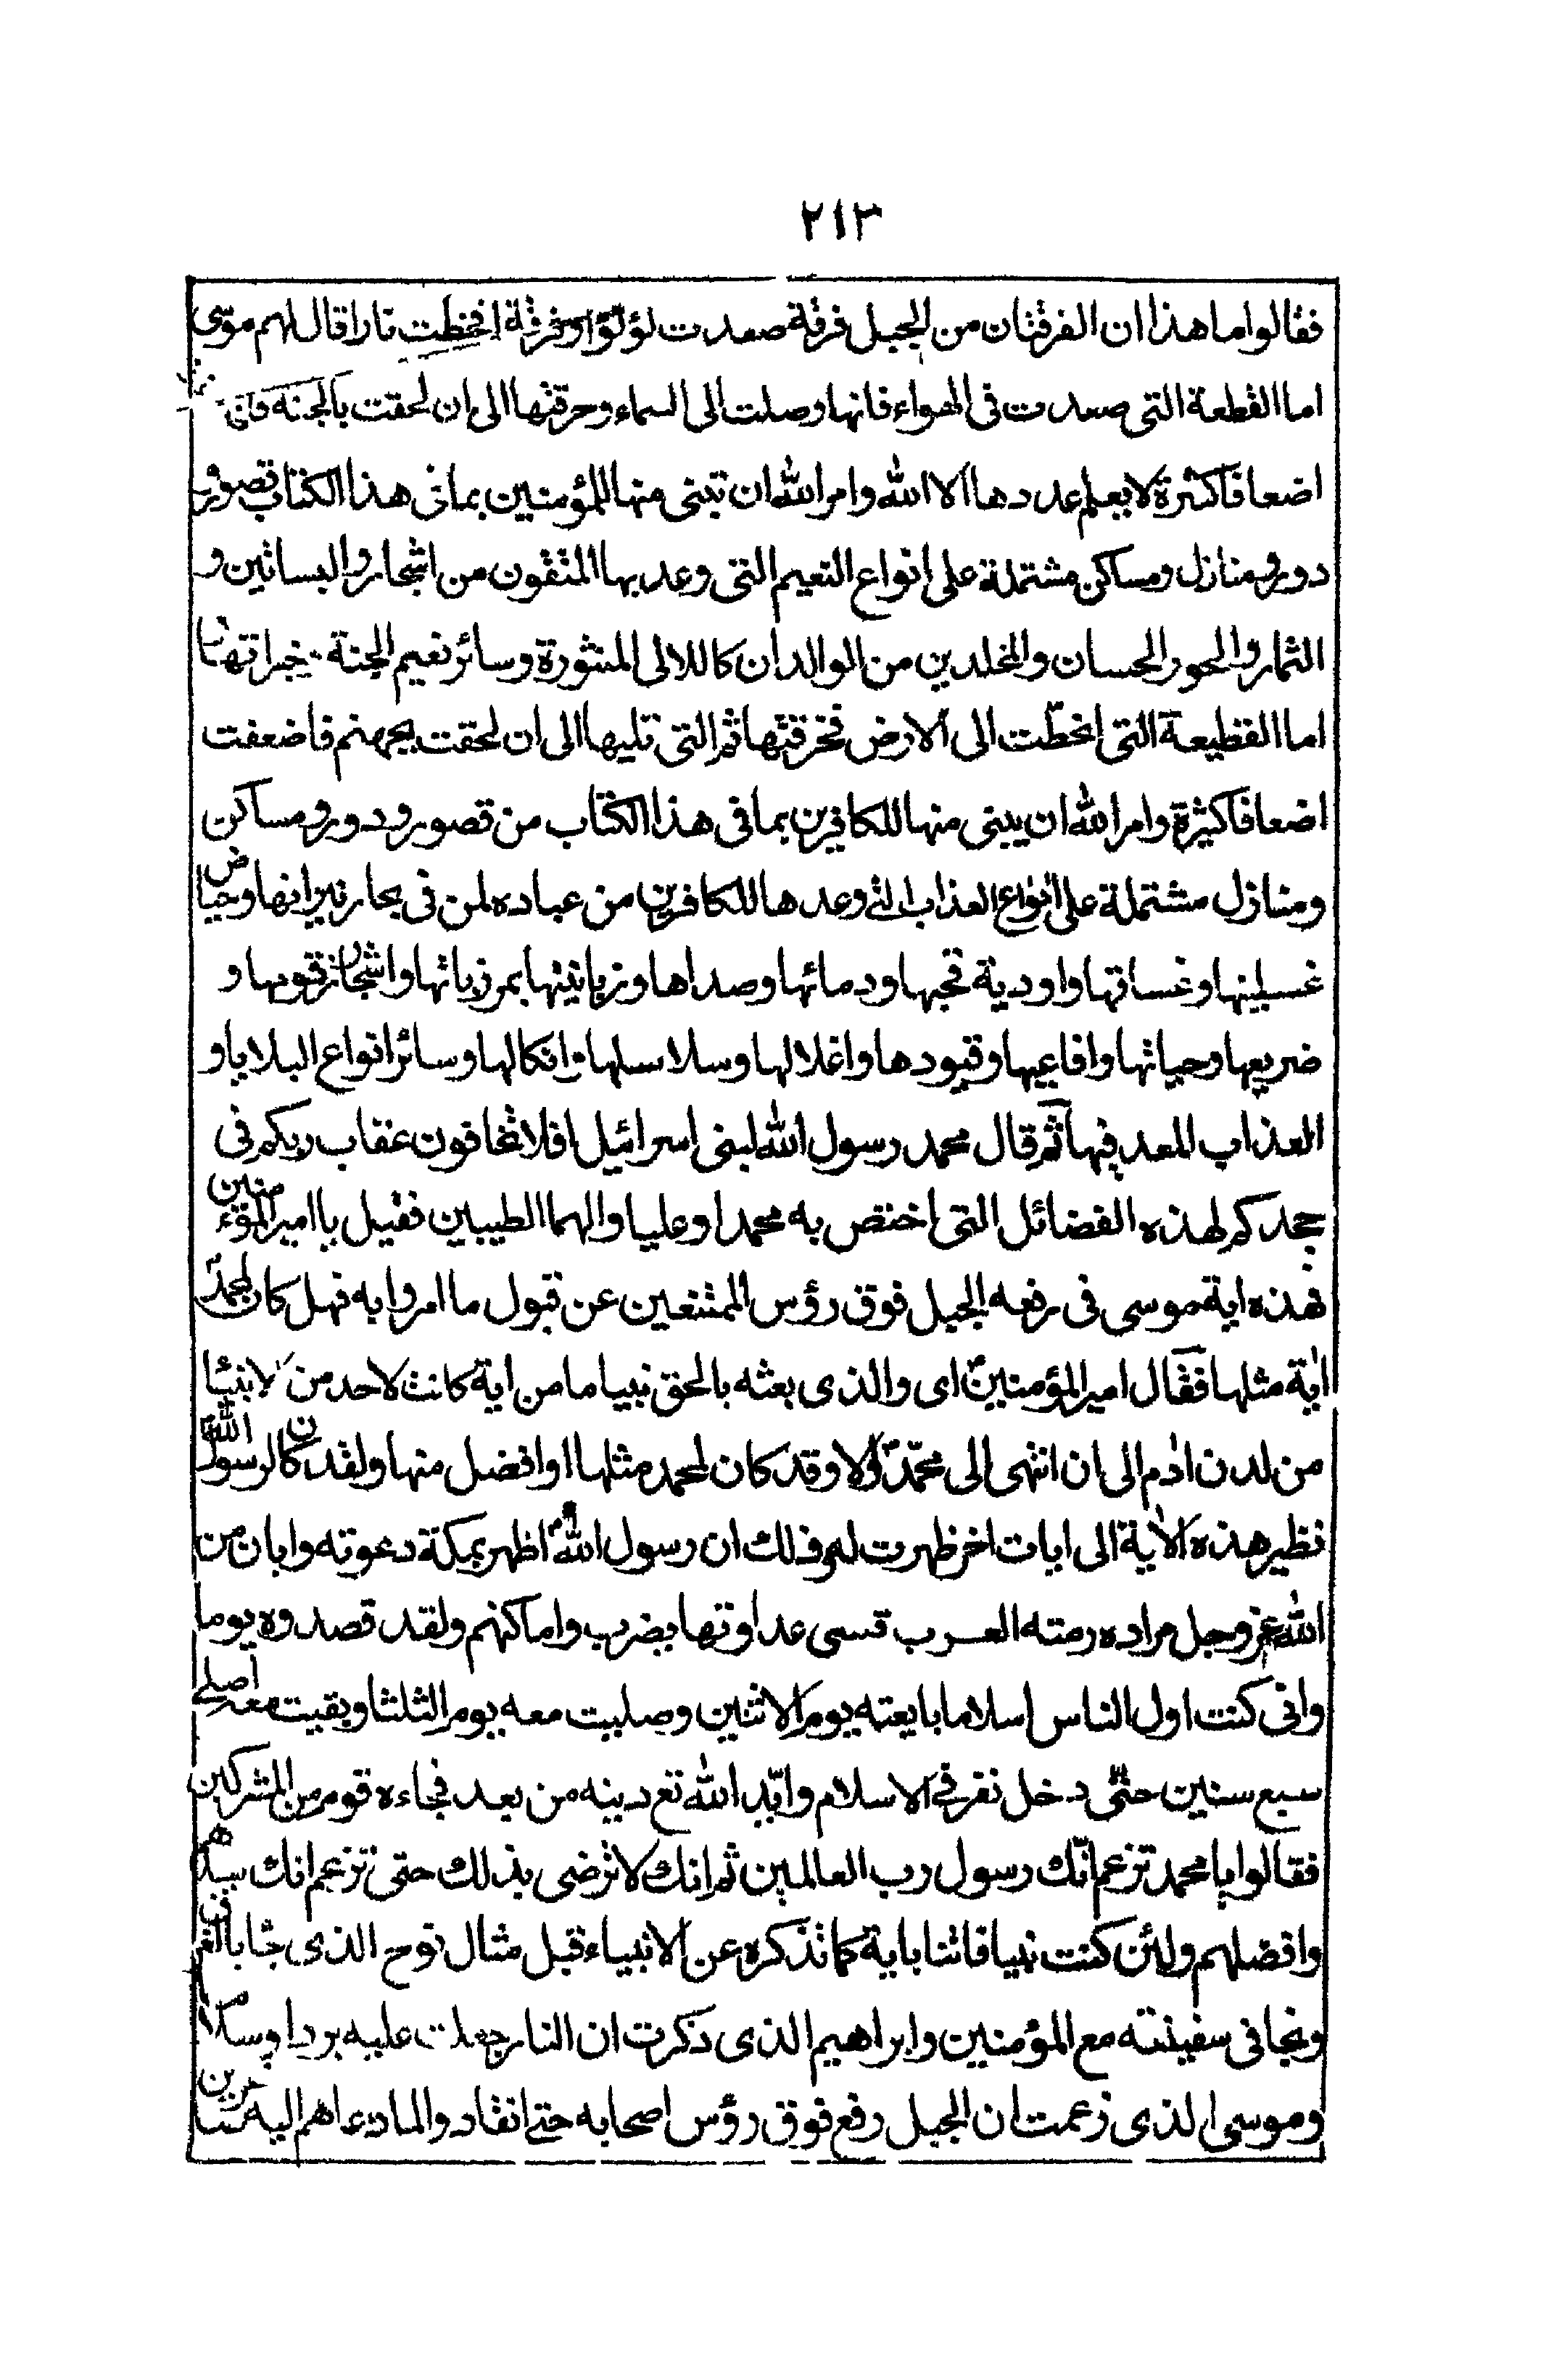 ٢١٣
فقالوا ما هذان الفرقتان من الجبل فرقة صعدت لؤلؤا وفرقة انحطت نارا قال لهم موسى
اما القطعة التى صعدت فى الهواء فانها وصلت الى السماء وخرقتها الى ان لحقت بالجنه
اضعافا كثيرة لا يعلم عددها الا الله وامر الله ان تبنى منها للمؤمنين بما فى هذا الكتاب قصور و
دور ومنازل ومساكن مشتملة على انواع النعيم التى وعد بها المتقون من اشجار والبساتين و
الثمار والحور الحسان والمخلدين من الوالدان كاللالى المنثورة وسائر نعيم الجنة خيراتها
اما القطيعة التى انحطّت الى الارض فخرقتها ثم التى تليها الى ان لحقت بجهنم فاضعفت
اضعافا كثيرة وامر الله ان يبنى منها للكافرين بما فى هذا الكتاب من قصور ودور ومساكن
ومنازل مشتملة على انواع العذاب التى وعدها للكافرين من عباده لمن فى بحار نيرانها وحياض
غسلينها وغساقها واودية قيحها ودمائها وصداها وزبانيتها بمرزباتها واشجار زقومها و
ضريعها وحياتها وافاعيها وقيودها واغلالها وسلاسلها وانكالها وسائر انواع البلايا و
العذاب المعد فيها ثم قال محمد رسول الله لبنى اسرائيل افلا تخافون عقاب ربكم فى
جحدكم لهذه الفضائل التى اختص به محمدا وعليا والهما الطيبين فقيل يا امير المؤمنين
فهذه اية موسى فى رفعه الجبل فوق رؤس الممتنعين عن قبول ما امروا به فهل كان لمحمدؐ
اية مثلها فقال امير المؤمنينؑ اى والذى بعثه بالحق نبيا ما من اية كانت لاحد من الانبيا
من لدن ادم الى ان انتهى الى محمّدؐ الا وقد كان لمحمد مثلها او افضل منها ولقد كان لرسول الله
نظير هذه الاية الى ايات اخر ظهرت له وذلك ان رسول اللهؐ اظهر بمكة دعوته وابان من
الله عز وجل مراده رمته العرب قسى عداوتها بضرب واماكنهم ولقد قصدوه يوما
وانى كنت اول الناس اسلاما بايعته يوم الاثنين وصليت معه يوم الثلثا وبقيت معه اصلى
سبع سنين حتّى دخل نفر فى الاسلام وايّد الله تع دينه من بعد فجاءه قوم من المشركين
فقالوا يا محمد تزعم انّك رسول رب العالمين ثم انك لا ترضى بذلك حتى تزعم انك سيدهم
وافضلهم ولئن كنت نبيا فاتنا باية كما تذكره عن الانبياء قبل مثال نوح الذى جا بالغرق
ونجا فى سفينته مع المؤمنين وابراهيم الذى ذكرت ان النار جعلت عليه بردا وسلاما
وموسى الذى زعمت ان الجبل رفع فوق رؤس اصحابه حتى انقادوا لما دعاهم اليه